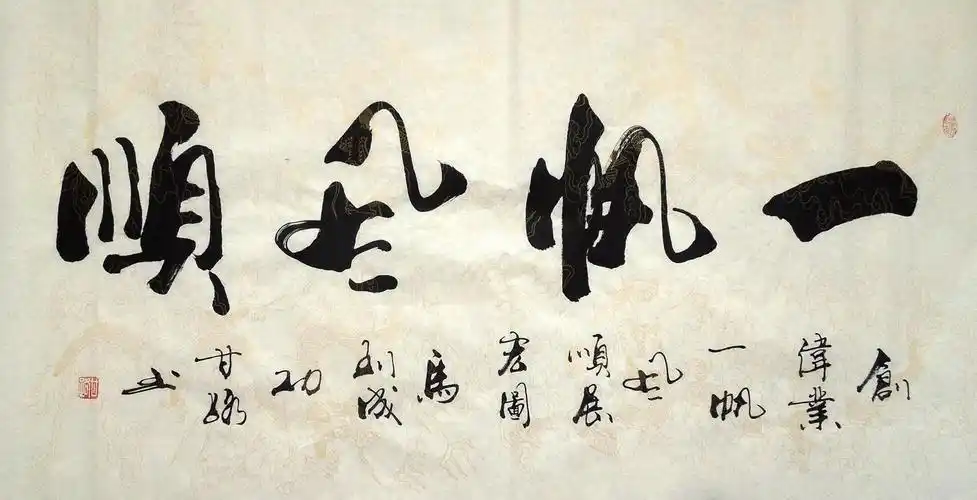 一帆風順
創偉業一帆風順展宏圖馬到成功甘书